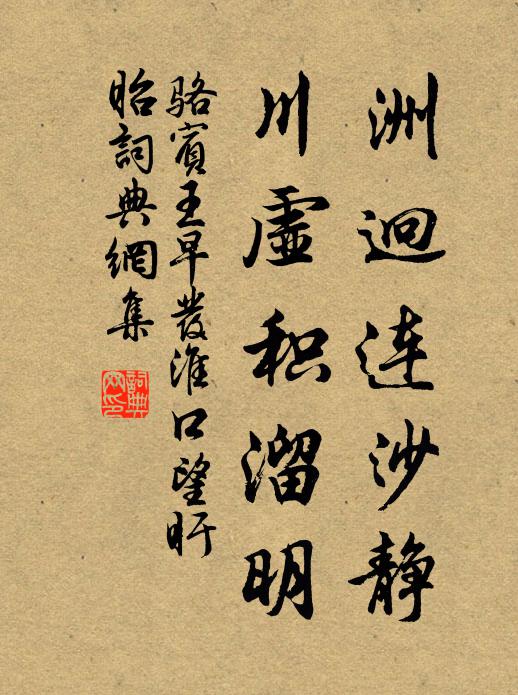 洲迥连沙静
川虚积溜明
骆賓王早發淮口望盱
眙詞典網集
詞典
网印